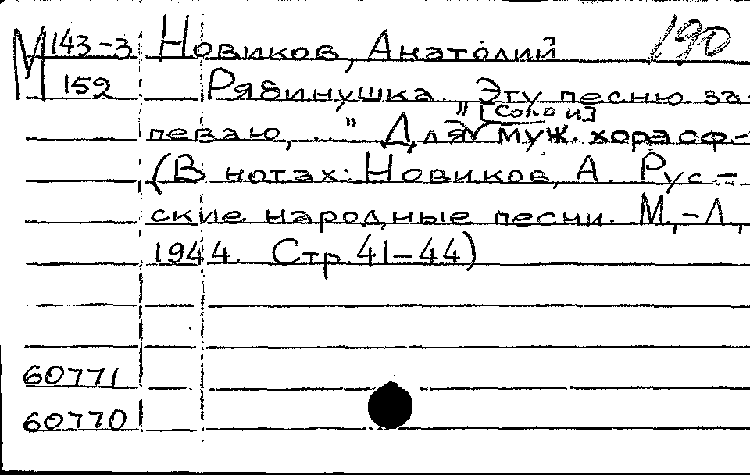 М 143-3 Новиков, Анатолий 190
159 Рябинушка. "Эту песню за-
певаю, ... " Для [соло и] муж. хора с ф-
(В нотах: Новиков, А. Рус-
ские народные песни. М.,-Л.,
1944. Стр. 41-44)
60771
60770